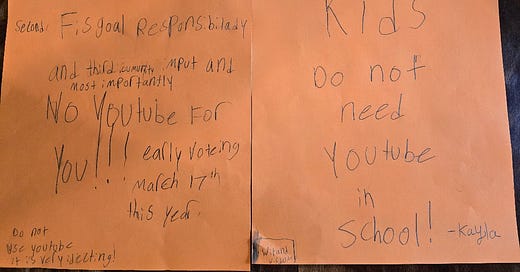 second: Fisgoal Responsibilady
and third comunity input and
most importantly
No Youtube For
You!!! early voteing
march 17th
this year.
Do not
use youtube
it is very
Kids
Do not
need
Youtube
in
School! -Kayla